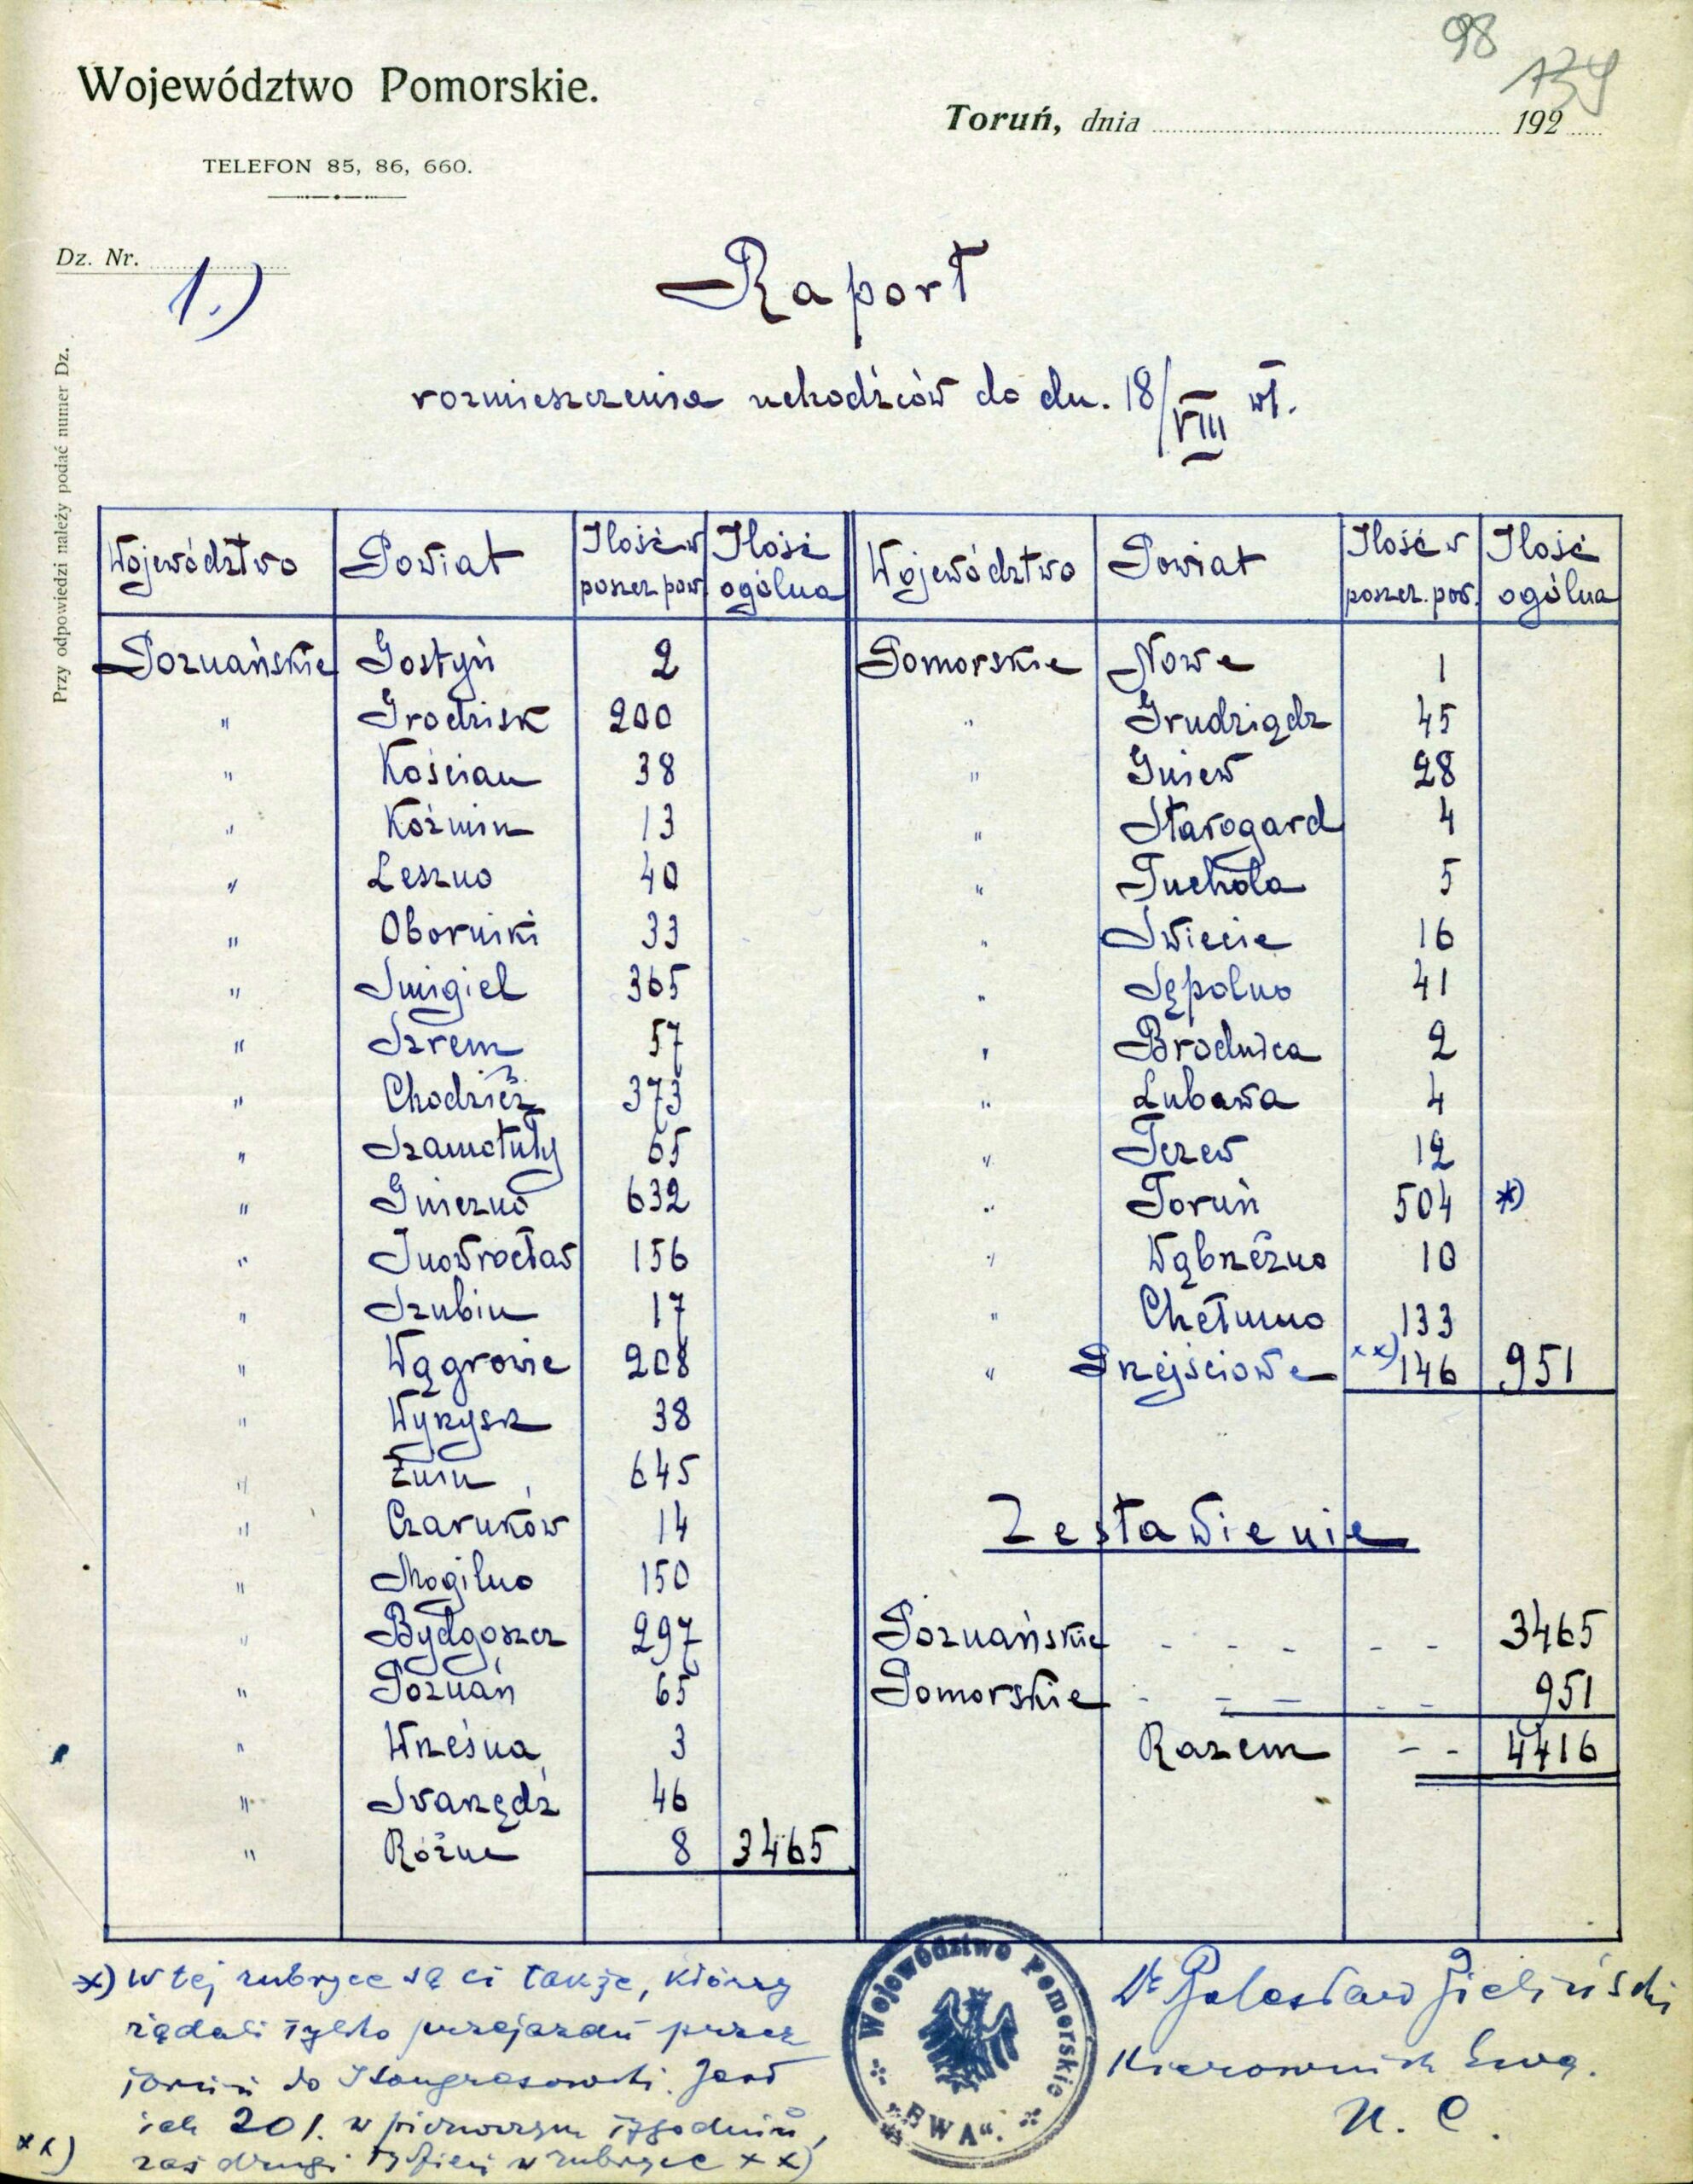 98
139
Województwo Pomorskie.
Toruń, dnia 192
TELEFON 85, 86, 660.
Dz. Nr.
1.)
Przy odpowiedzi należy podać numer Dz.
Raport
rozmieszczenia uchodźców do dn. 18/VIII wł.
Województwo Powiat Ilość w poszcz. pow. Ilość ogólna Województwo Powiat Ilość w poszcz. pow. Ilość ogólna
Poznańskie Gostyń 2 Pomorskie Nowe 1
" Grodzisk 200 " Grudziądz 45
" Kościan 38 " Gniew 28
" Koźmin 13 " Starogard 4
" Leszno 40 " Tuchola 5
" Oborniki 33 " Swiecie 16
" Smigiel 365 " Sępolno 41
" Szrem 57 " Brodnica 2
" Chodzież 373 " Lubawa 4
" Szamotuły 65 " Tczew 12
" Gniezno 632 " Toruń 504 *)
" Inowrocław 156 " Wąbrzeźno 10
" Szubin 17 " Chełmno 133
" Wągrowie 208 " Przejściowe xx) 146 951
" Wyrzysk 38
" Żnin 645
" Czarnków 14
Zestawienie
" Mogilno 150
" Bydgoszcz 297 Poznańskie - - - - - 3465
" Poznań 65 Pomorskie - - - - - 951
" Września 3 Razem - - 4416
" Swarzędź 46
" Różne 8 3465
x) w tej rubryce są ci także, którzy
żądali tylko przejazdu przez
Toruń do Kongresówki. Jest
ich 201. w pierwszym tygodniu,
xx) zaś drugi tydzień w rubryce xx)
Województwo Pomorskie
"EWA".
Dr Bolesław Zieliński
Kierownik Ewa.
N. C.